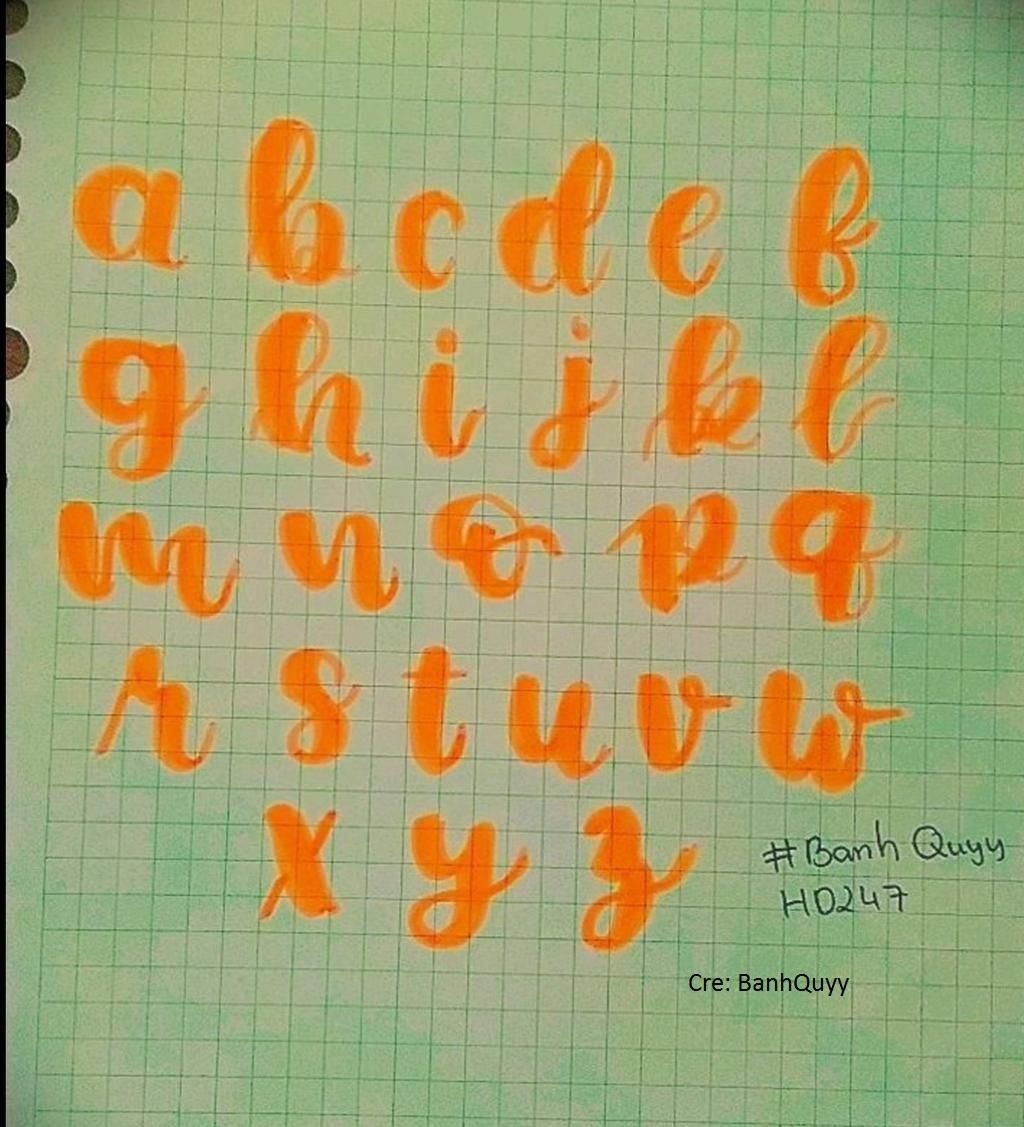 a b c d e f
g h i j k l
m n o p q
r s t u v w
x y z
#Banh Quyy
HD247
Cre: BanhQuyy